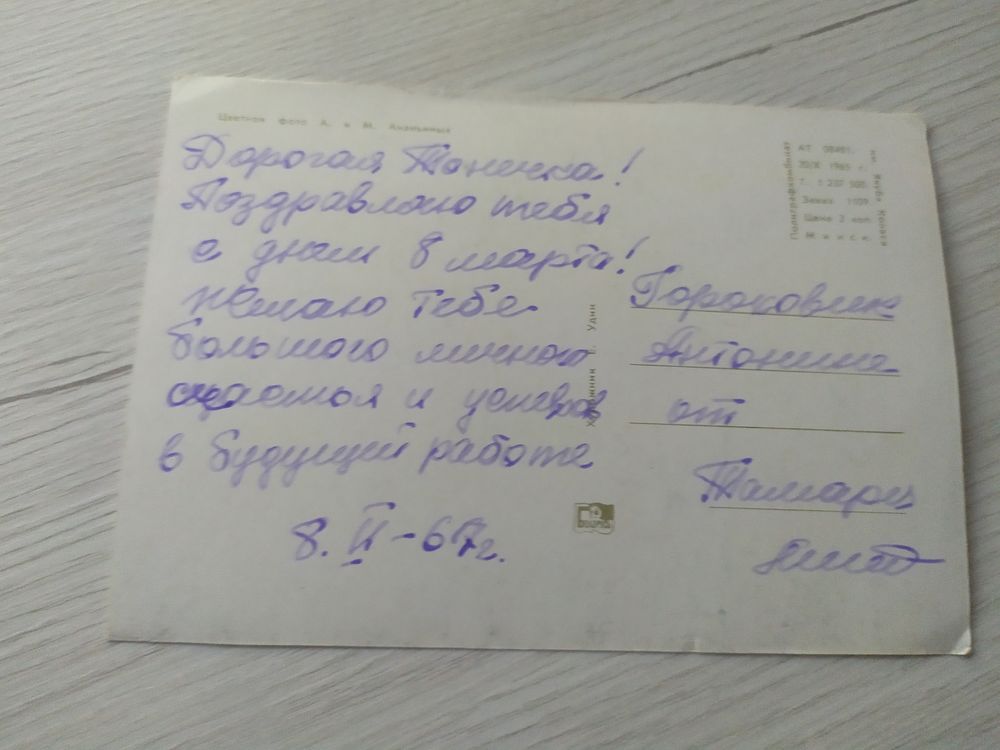 Цветное фото А. и М. Ананьиных
Дорогая Тонечка!
Поздравляю тебя
с днем 8 марта!
Желаю тебе
большого личного
счастья и успехов
в будущей работе
8. II - 67г.
Художник Е. Удин
Полиграфкомбинат
АТ 08481.
1965 г.
Т. 1 237 500.
Заказ 1109.
Цена 3 коп
Минск.
им. Якуба Коласа
Гороховик
Антонине
от
Тамары